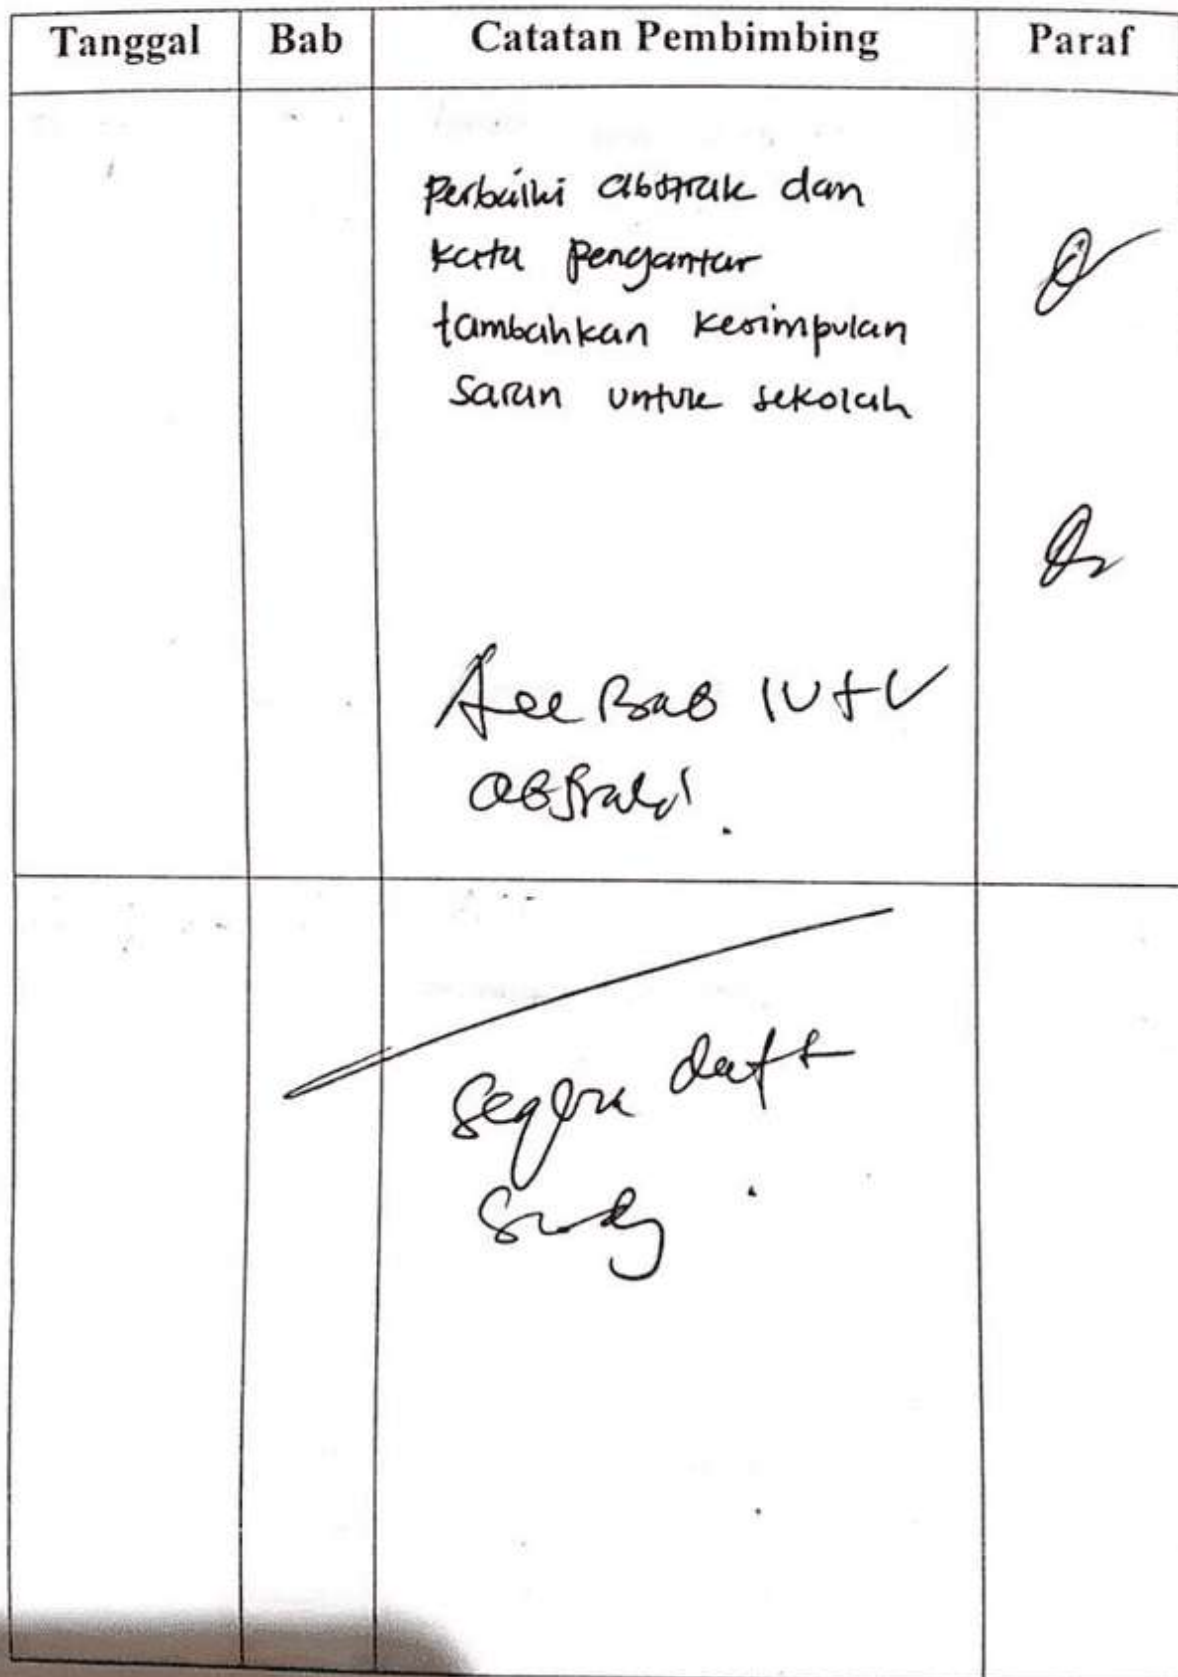 Tanggal Bab Catatan Pembimbing Paraf
Perbaiki abstrak dan
kata pengantar
tambahkan kesimpulan
saran untuk sekolah
Acc Bab IV + V
abstrak.
segera daft